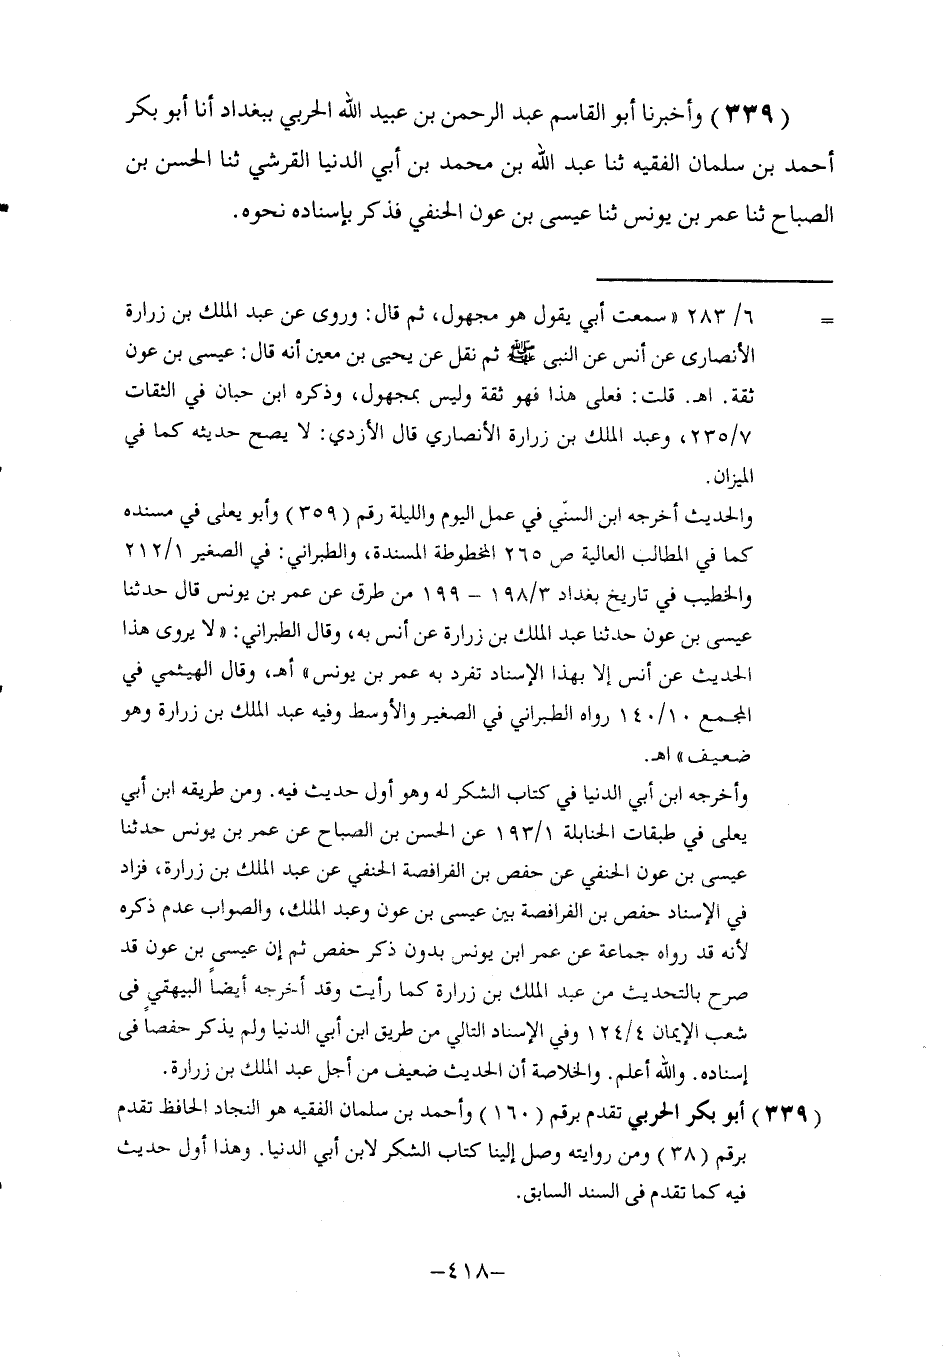 (٣٣٩) وأخبرنا أبو القاسم عبد الرحمن بن عبيد الله الحربي ببغداد أنا أبو بكر
أحمد بن سلمان الفقيه ثنا عبد الله بن محمد بن أبي الدنيا القرشي ثنا الحسن بن
الصباح ثنا عمر بن يونس ثنا عيسى بن عون الحنفي فذكر بإسناده نحوه.
= ٦/ ٢٨٣ «سمعت أبي يقول هو مجهول، ثم قال: وروى عن عبد الملك بن زرارة
الأنصارى عن أنس عن النبى ﷺ ثم نقل عن يحيى بن معين أنه قال: عيسى بن عون
ثقة. اهـ. قلت: فعلى هذا فهو ثقة وليس بمجهول، وذكره ابن حبان في الثقات
٢٣٥/٧، وعبد الملك بن زرارة الأنصاري قال الأزدي: لا يصح حديثه كما في
الميزان.
والحديث أخرجه ابن السنّي في عمل اليوم والليلة رقم (٣٥٩) وأبو يعلى في مسنده
كما في المطالب العالية ص ٢٦٥ المخطوطة المسندة، والطبراني: في الصغير ٢١٢/١
والخطيب في تاريخ بغداد ١٩٨/٣ – ١٩٩ من طرق عن عمر بن يونس قال حدثنا
عيسى بن عون حدثنا عبد الملك بن زرارة عن أنس به، وقال الطبراني: «لا يروى هذا
الحديث عن أنس إلا بهذا الإسناد تفرد به عمر بن يونس» أهـ، وقال الهيثمي في
المجمع ١٤٠/١٠ رواه الطبراني في الصغير والأوسط وفيه عبد الملك بن زرارة وهو
ضعيف» اهـ.
وأخرجه ابن أبي الدنيا في كتاب الشكر له وهو أول حديث فيه. ومن طريقه ابن أبي
يعلى في طبقات الحنابلة ١٩٣/١ عن الحسن بن الصباح عن عمر بن يونس حدثنا
عيسى بن عون الحنفي عن حفص بن الفرافصة الحنفي عن عبد الملك بن زرارة، فزاد
في الإسناد حفص بن الفرافصة بين عيسى بن عون وعبد الملك، والصواب عدم ذكره
لأنه قد رواه جماعة عن عمر ابن يونس بدون ذكر حفص ثم إن عيسى بن عون قد
صرح بالتحديث من عبد الملك بن زرارة كما رأيت وقد أخرجه أيضاً البيهقي فى
شعب الإيمان ١٢٤/٤ وفي الإسناد التالي من طريق ابن أبي الدنيا ولم يذكر حفصاً فى
إسناده. والله أعلم. والخلاصة أن الحديث ضعيف من أجل عبد الملك بن زرارة.
(٣٣٩) أبو بكر الحربي تقدم برقم (١٦٠) وأحمد بن سلمان الفقيه هو النجاد الحافظ تقدم
برقم (٣٨) ومن روايته وصل إلينا كتاب الشكر لابن أبي الدنيا. وهذا أول حديث
فيه كما تقدم فى السند السابق.
–٤١٨–